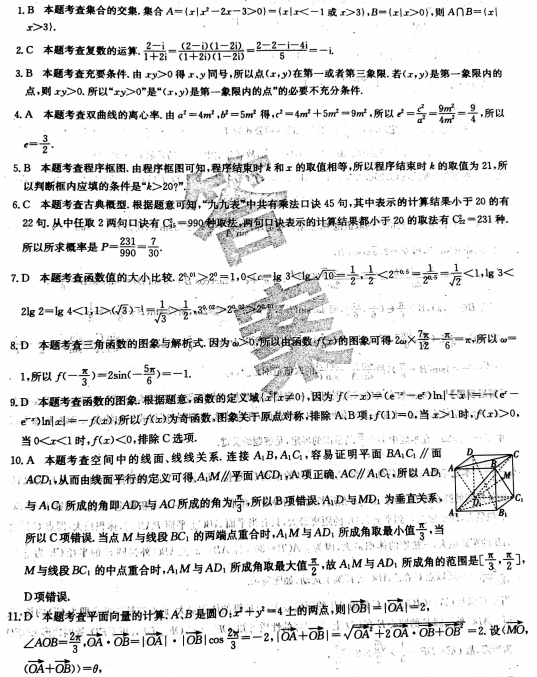 1. B 本题考查集合的交集. 集合 A={x|x²-2x-3>0}={x|x<-1 或 x>3},B={x|x>0},则 A∩B={x|
x>3}.
2. C 本题考查复数的运算. (2-i)/(1+2i)=(2-i)(1-2i)/((1+2i)(1-2i))=(2-2-i-4i)/5=-i.
3. B 本题考查充要条件. 由 xy>0 得 x、y 同号,所以点(x,y)在第一或者第三象限. 若(x,y)是第一象限内的
点,则 xy>0. 所以“xy>0”是“(x,y)是第一象限内的点”的必要不充分条件.
4. A 本题考查双曲线的离心率. 由 a²=4m²,b²=5m² 得,c²=4m²+5m²=9m²,所以 e²=c²/a²=9m²/4m²=9/4,所以
e=3/2.
5. B 本题考查程序框图. 由程序框图可知,程序结束时 k 和 x 的取值相等,所以程序结束时 k 的取值为 21,所
以判断框内应填的条件是“k>20?”.
6. C 本题考查古典概型. 根据题意可知,“九九表”中共有乘法口诀 45 句,其中表示的计算结果小于 20 的有
22 句. 从中任取 2 两句口诀有 C²₄₅=990 种取法,两句口诀表示的计算结果都小于 20 的取法有 C²₂₂=231 种.
所以所求概率是 P=231/990=7/30.
7. D 本题考查函数值的大小比较. 2^0.01>2⁰=1,0<c=lg 3<lg √10=1/2,1/2<2^-0.5=1/2^0.5=1/√2<1,lg 3<
2lg 2=lg 4<1,1>(√3)⁻¹=1/√3>1/2,3^0.02>2^0.02>2^0.01.
8. D 本题考查三角函数的图象与解析式. 因为 ω>0,所以由函数 f(x)的图象可得 2ω×7π/12-π/6=π,所以 ω=
1,所以 f(-π/3)=2sin(-5π/6)=-1.
9. D 本题考查函数的图象. 根据题意,函数的定义域{x|x≠0},因为 f(-x)=(e⁻ˣ-eˣ)ln|-x|=-(eˣ-
e⁻ˣ)ln|x|=-f(x),所以 f(x)为奇函数,图象关于原点对称,排除 A、B 项;f(1)=0,当 x>1 时,f(x)>0,
当 0<x<1 时,f(x)<0,排除 C 选项.
10. A 本题考查空间中的线面、线线关系. 连接 A₁B,A₁C₁,容易证明平面 BA₁C₁∥面
ACD₁,从而由线面平行的定义可得 A₁M∥平面 ACD₁,A 项正确. AC∥A₁C₁,所以 AD₁
与 A₁C₁ 所成的角即 AD₁ 与 AC 所成的角为 π/3,所以 B 项错误. A₁D 与 MD₁ 为垂直关系,
所以 C 项错误. 当点 M 与线段 BC₁ 的两端点重合时,A₁M 与 AD₁ 所成角取最小值 π/3,当
M 与线段 BC₁ 的中点重合时,A₁M 与 AD₁ 所成角取最大值 π/2,故 A₁M 与 AD₁ 所成角的范围是[π/3,π/2],
D 项错误.
D
C
A
B
M
D₁
C₁
A₁
B₁
11. D 本题考查平面向量的计算. A、B 是圆 O:x²+y²=4 上的两点,则|OB|=|OA|=2,
∠AOB=2π/3,OA·OB=|OA|·|OB|cos 2π/3=-2,|OA+OB|=√(OA²+2OA·OB+OB²)=2. 设⟨MO,
(OA+OB)⟩=θ,
答
案